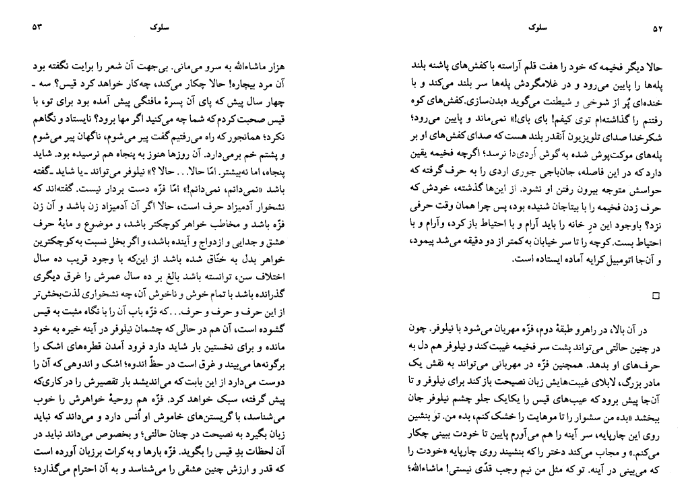 ۵۲
سلوک
حالا دیگر فخیمه که خود را هفت قلم آراسته با کفش‌های پاشنه بلند
پله‌ها را پایین می‌رود و در غلامگردش پله‌ها سر بلند می‌کند و با
خنده‌ای پُر از شوخی و شیطنت می‌گوید «بدن‌سازی. کفش‌های کوه
رفتنم را گذاشته‌ام توی کیفم! بای بای!» نمی‌ماند و پایین می‌رود؛
شکر خدا صدای تلویزیون آنقدر بلند هست که صدای کفش‌های او بر
پله‌های موکت‌پوش شده به گوش آردی‌دا نرسد؛ اگرچه فخیمه یقین
دارد که در این فاصله، جان‌باجی جوری اردی را به حرف گرفته که
حواسش متوجه بیرون رفتن او نشود. از این‌ها گذشته، خودش که
حرف زدن فخیمه را با بیتاجان شنیده بود، پس چرا همان وقت حرفی
نزد؟ باوجود این در خانه را باید آرام و با احتیاط باز کرد، و آرام و با
احتیاط بست. کوچه را تا سر خیابان به کمتر از دو دقیقه می‌شد پیمود،
و آن‌جا اتومبیل کرایه آماده ایستاده است.
□
در آن بالا، در راهرو طبقهٔ دوم، فزّه مهربان می‌شود با نیلوفر. چون
در چنین حالتی می‌تواند پشت سر فخیمه غیبت کند و نیلوفر هم دل به
حرف‌های او بدهد. همچنین فزّه در مهربانی می‌تواند به نقش یک
مادر بزرگ، لابلای غیبت‌هایش زبان نصیحت باز کند برای نیلوفر و تا
آن‌جا پیش برود که عیب‌های قیس را یکایک جلو چشم نیلوفر جان
ببخشد «بده من سشوار را تا موهایت را خشک کنم، بده من. تو بنشین
روی این چارپایه، سر آینه را هم می‌آورم پایین تا خودت ببینی چکار
می‌کنم.» و مجاب می‌کند دختر را که بنشیند روی چارپایه «خودت را
که می‌بینی در آینه. تو که مثل من نیم وجب قدّی نیستی! ماشاءالله؛
سلوک
۵۳
هزار ماشاءالله به سرو می‌مانی. بی‌جهت آن شعر را برایت نگفته بود
آن مرد بیچاره! حالا چکار می‌کند، چه‌کار خواهد کرد قیس؟ سه ـ
چهار سال پیش که پای آن پسرهٔ مافنگی پیش آمده بود برای تو، با
قیس صحبت کردم که شما چه می‌کنید اگر مها برود؟ نایستاد و نگاهم
نکرد؛ همانجور که راه می‌رفتیم گفت پیر می‌شوم، ناگهان پیر می‌شوم
و پشتم خم برمی‌دارد. آن روزها هنوز به پنجاه هم نرسیده بود. شاید
پنجاه، اما نه بیشتر. امّا حالا... حالا؟» نیلوفر می‌تواند ـ یا شاید ـ گفته
باشد «نمی‌دانم، نمی‌دانم!» امّا فزّه دست بردار نیست. گفته‌اند که
نشخوار آدمیزاد حرف است، حالا اگر آن آدمیزاد زن باشد و آن زن
فزّه باشد و مخاطب خواهر کوچکتر باشد، و موضوع و مایهٔ حرف
عشق و جدایی و ازدواج و آینده باشد، و اگر بخل نسبت به کوچکترین
خواهر بدل به خنّاق شده باشد از این‌که با وجود قریب ده سال
اختلاف سن، توانسته باشد بالغ بر ده سال عمرش را غرق دیگری
گذرانده باشد با تمام خوش و ناخوش آن، چه نشخواری لذت‌بخش‌تر
از این حرف و حرف و حرف... که فزّه باب آن را با نگاه مثبت به قیس
گشوده است، آن هم در حالی که چشمان نیلوفر در آینه خیره به خود
مانده و برای نخستین بار شاید دارد فرود آمدن قطره‌های اشک را
برگونه‌ها می‌بیند و غرق است در حظّ اندوه؛ اشک و اندوهی که آن را
دوست می‌دارد از این بابت که می‌اندیشد بار تقصیرش را در کاری که
پیش گرفته، سبک خواهد کرد. فزّه هم روحیهٔ خواهرش را خوب
می‌شناسد، با گریستن‌های خاموش او اُنس دارد و می‌داند که نباید
زبان بگیرد به نصیحت در چنان حالتی؛ و بخصوص می‌داند نباید در
آن لحظات بدِ قیس را بگوید. فزّه بارها و به کرات بر زبان آورده است
که قدر و ارزش چنین عشقی را می‌شناسد و به آن احترام می‌گذارد؛